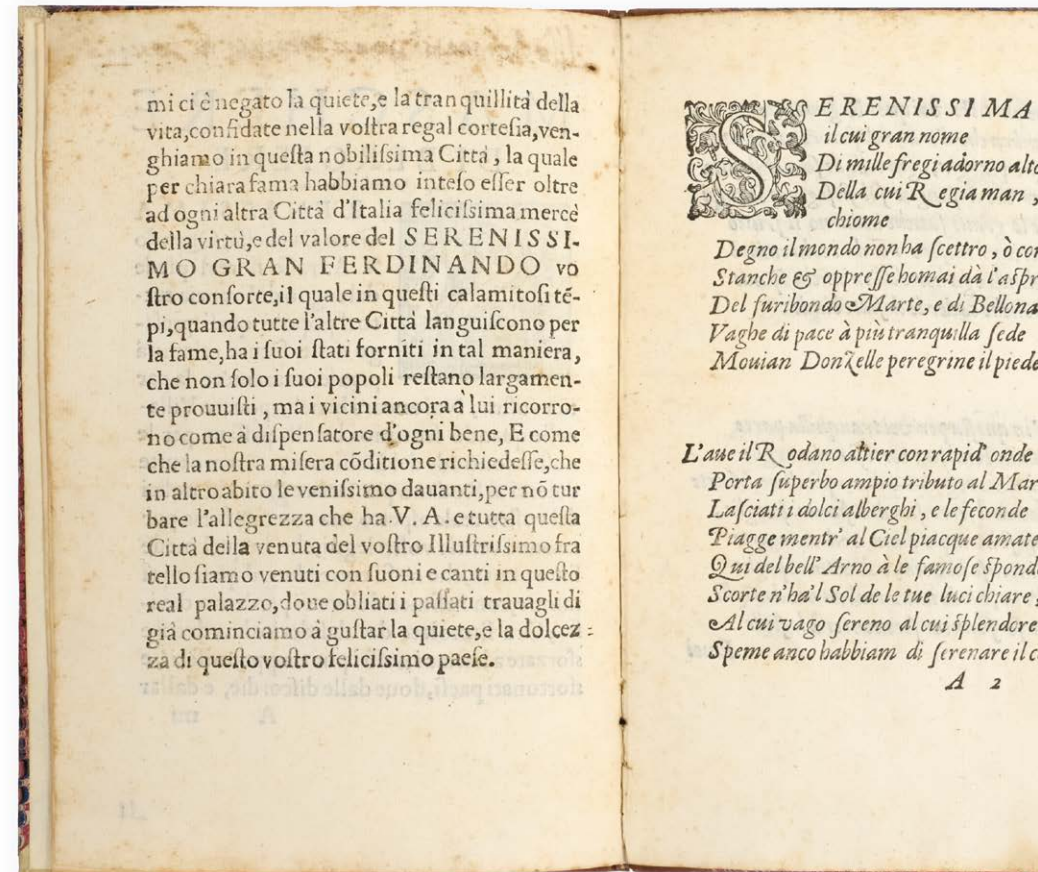 mi ci è negato la quiete,e la tranquillità della
vita,confidate nella voſtra regal corteſia,ven-
ghiamo in queſta nobiliſsima Città , la quale
per chiara fama habbiamo inteſo eſſer oltre
ad ogni altra Città d'Italia feliciſsima mercè
della virtù,e del valore del SERENISSI-
MO GRAN FERDINANDO vo
ſtro conſorte,il quale in queſti calamitoſi tẽ-
pi,quando tutte l'altre Città languiſcono per
la fame,ha i ſuoi ſtati forniti in tal maniera,
che non ſolo i ſuoi popoli reſtano largamen-
te prouuiſti , ma i vicini ancora à lui ricorro-
no come à diſpenſatore d'ogni bene, E come
che la noſtra miſera cõditione richiedeſſe,che
in altro abito le veniſsimo dauanti,per nõ tur
bare l'allegrezza che ha V. A. e tutta queſta
Città della venuta del voſtro Illuſtriſsimo fra
tello ſiamo venuti con ſuoni e canti in queſto
real palazzo,doue obliati i paſſati trauagli di
già cominciamo à guſtar la quiete,e la dolcez
za di queſto voſtro feliciſsimo paeſe.
SERENISSIMA
il cui gran nome
Di mille fregi adorno alto
Della cui Regia man ,
chiome
Degno il mondo non ha ſcettro , ò cor
Stanche & oppreſſe homai dà l'aſpr
Del furibondo Marte, e di Bellona
Vaghe di pace à più tranquilla ſede
Mouian Donzelle peregrine il piede
L'aue il Rodano altier con rapid' onde
Porta ſuperbo ampio tributo al Mar
Laſciati i dolci alberghi , e le feconde
Piagge mentr' al Ciel piacque amate
Qui del bell' Arno à le famoſe ſpond
Scorte n'ha'l Sol de le tue luci chiare ,
Al cui vago ſereno al cui ſplendore
Speme anco habbiam di ſerenare il c
A 2